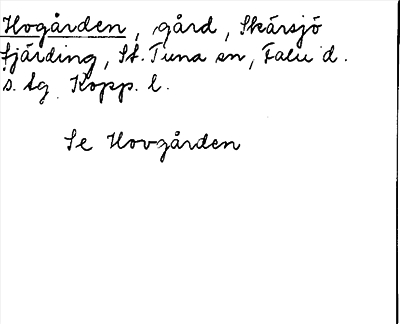 Hogården, gård, Skärsjö
fjärding, St. Tuna sn, Falu d.
s. tg Kopp. l.
Se Hovgården